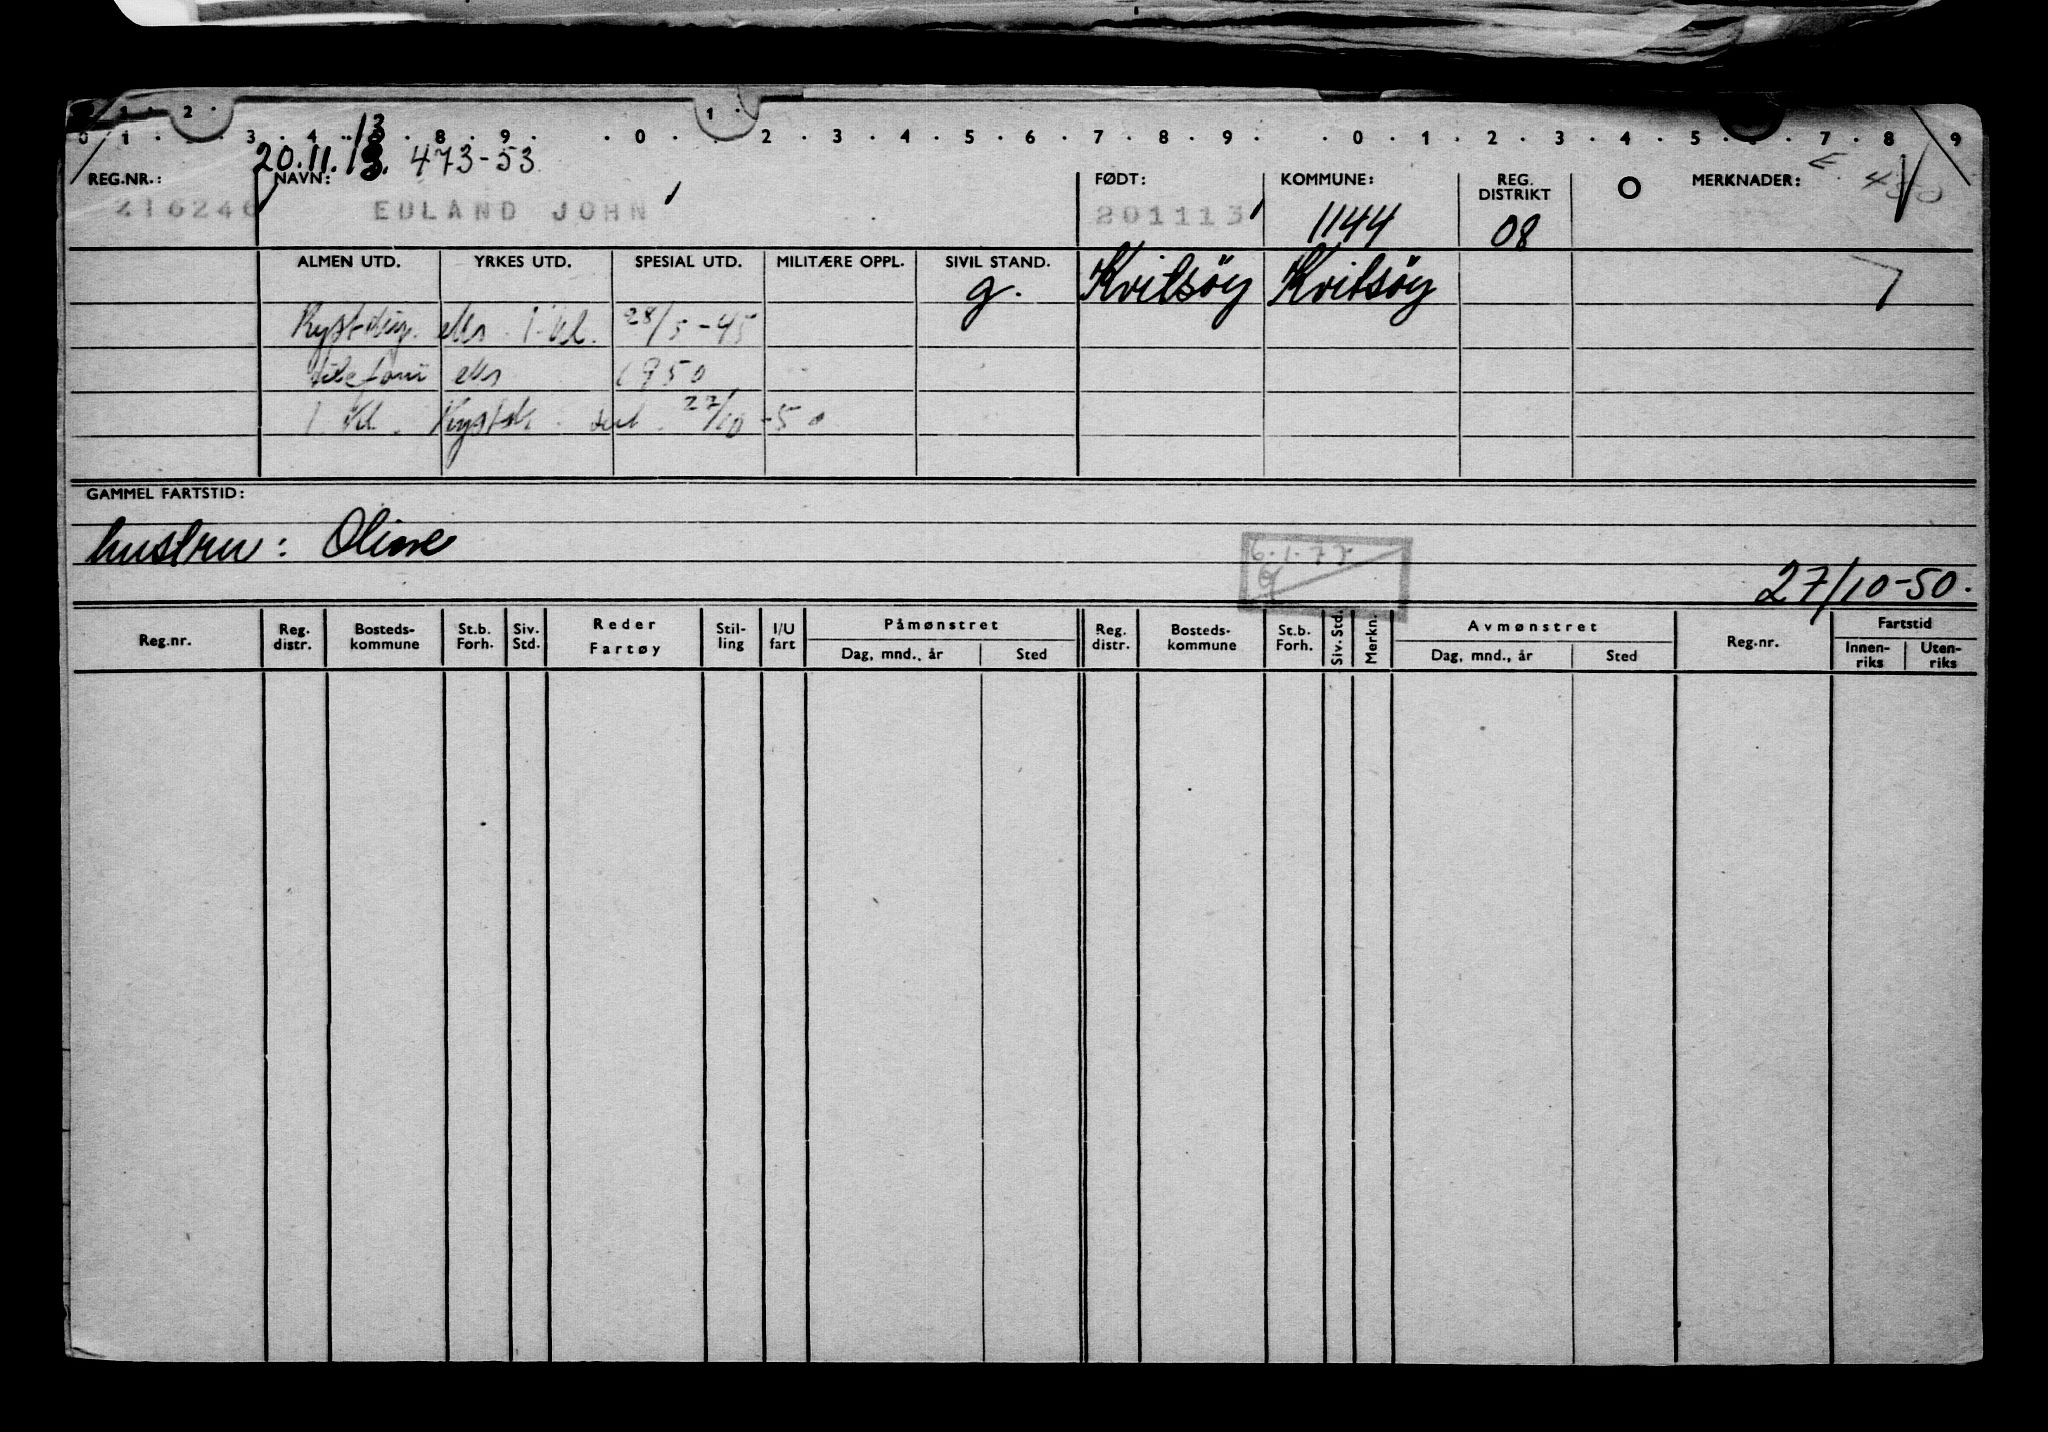 2 1
0 1 3 4 8 9 0 2 3 4 5 6 7 8 9 0 1 2 3 4 5 7 8 9
20.11.13. 473-53
REG.NR.: NAVN: FØDT: KOMMUNE: REG. DISTRIKT MERKNADER:
216246 EDLAND JOHN 201113 1144 08
ALMEN UTD. YRKES UTD. SPESIAL UTD. MILITÆRE OPPL. SIVIL STAND.
g. Kvitsöy Kvitsöy
eks. 1. kl. 28/5-45
eks 1950
1. kl. 27/10-50
GAMMEL FARTSTID:
hustru: Oline
6.1.72
27/10-50.
Reg.nr. Reg. distr. Bosteds-kommune St.b. Forh. Siv. Std. Reder Fartøy Stil-ling I/U fart Påmønstret Dag, mnd., år Sted Reg. distr. Bosteds-kommune St.b. Forh. Siv. Std. Merkn. Avmønstret Dag, mnd., år Sted Reg.nr. Fartstid Innen-riks Uten-riks